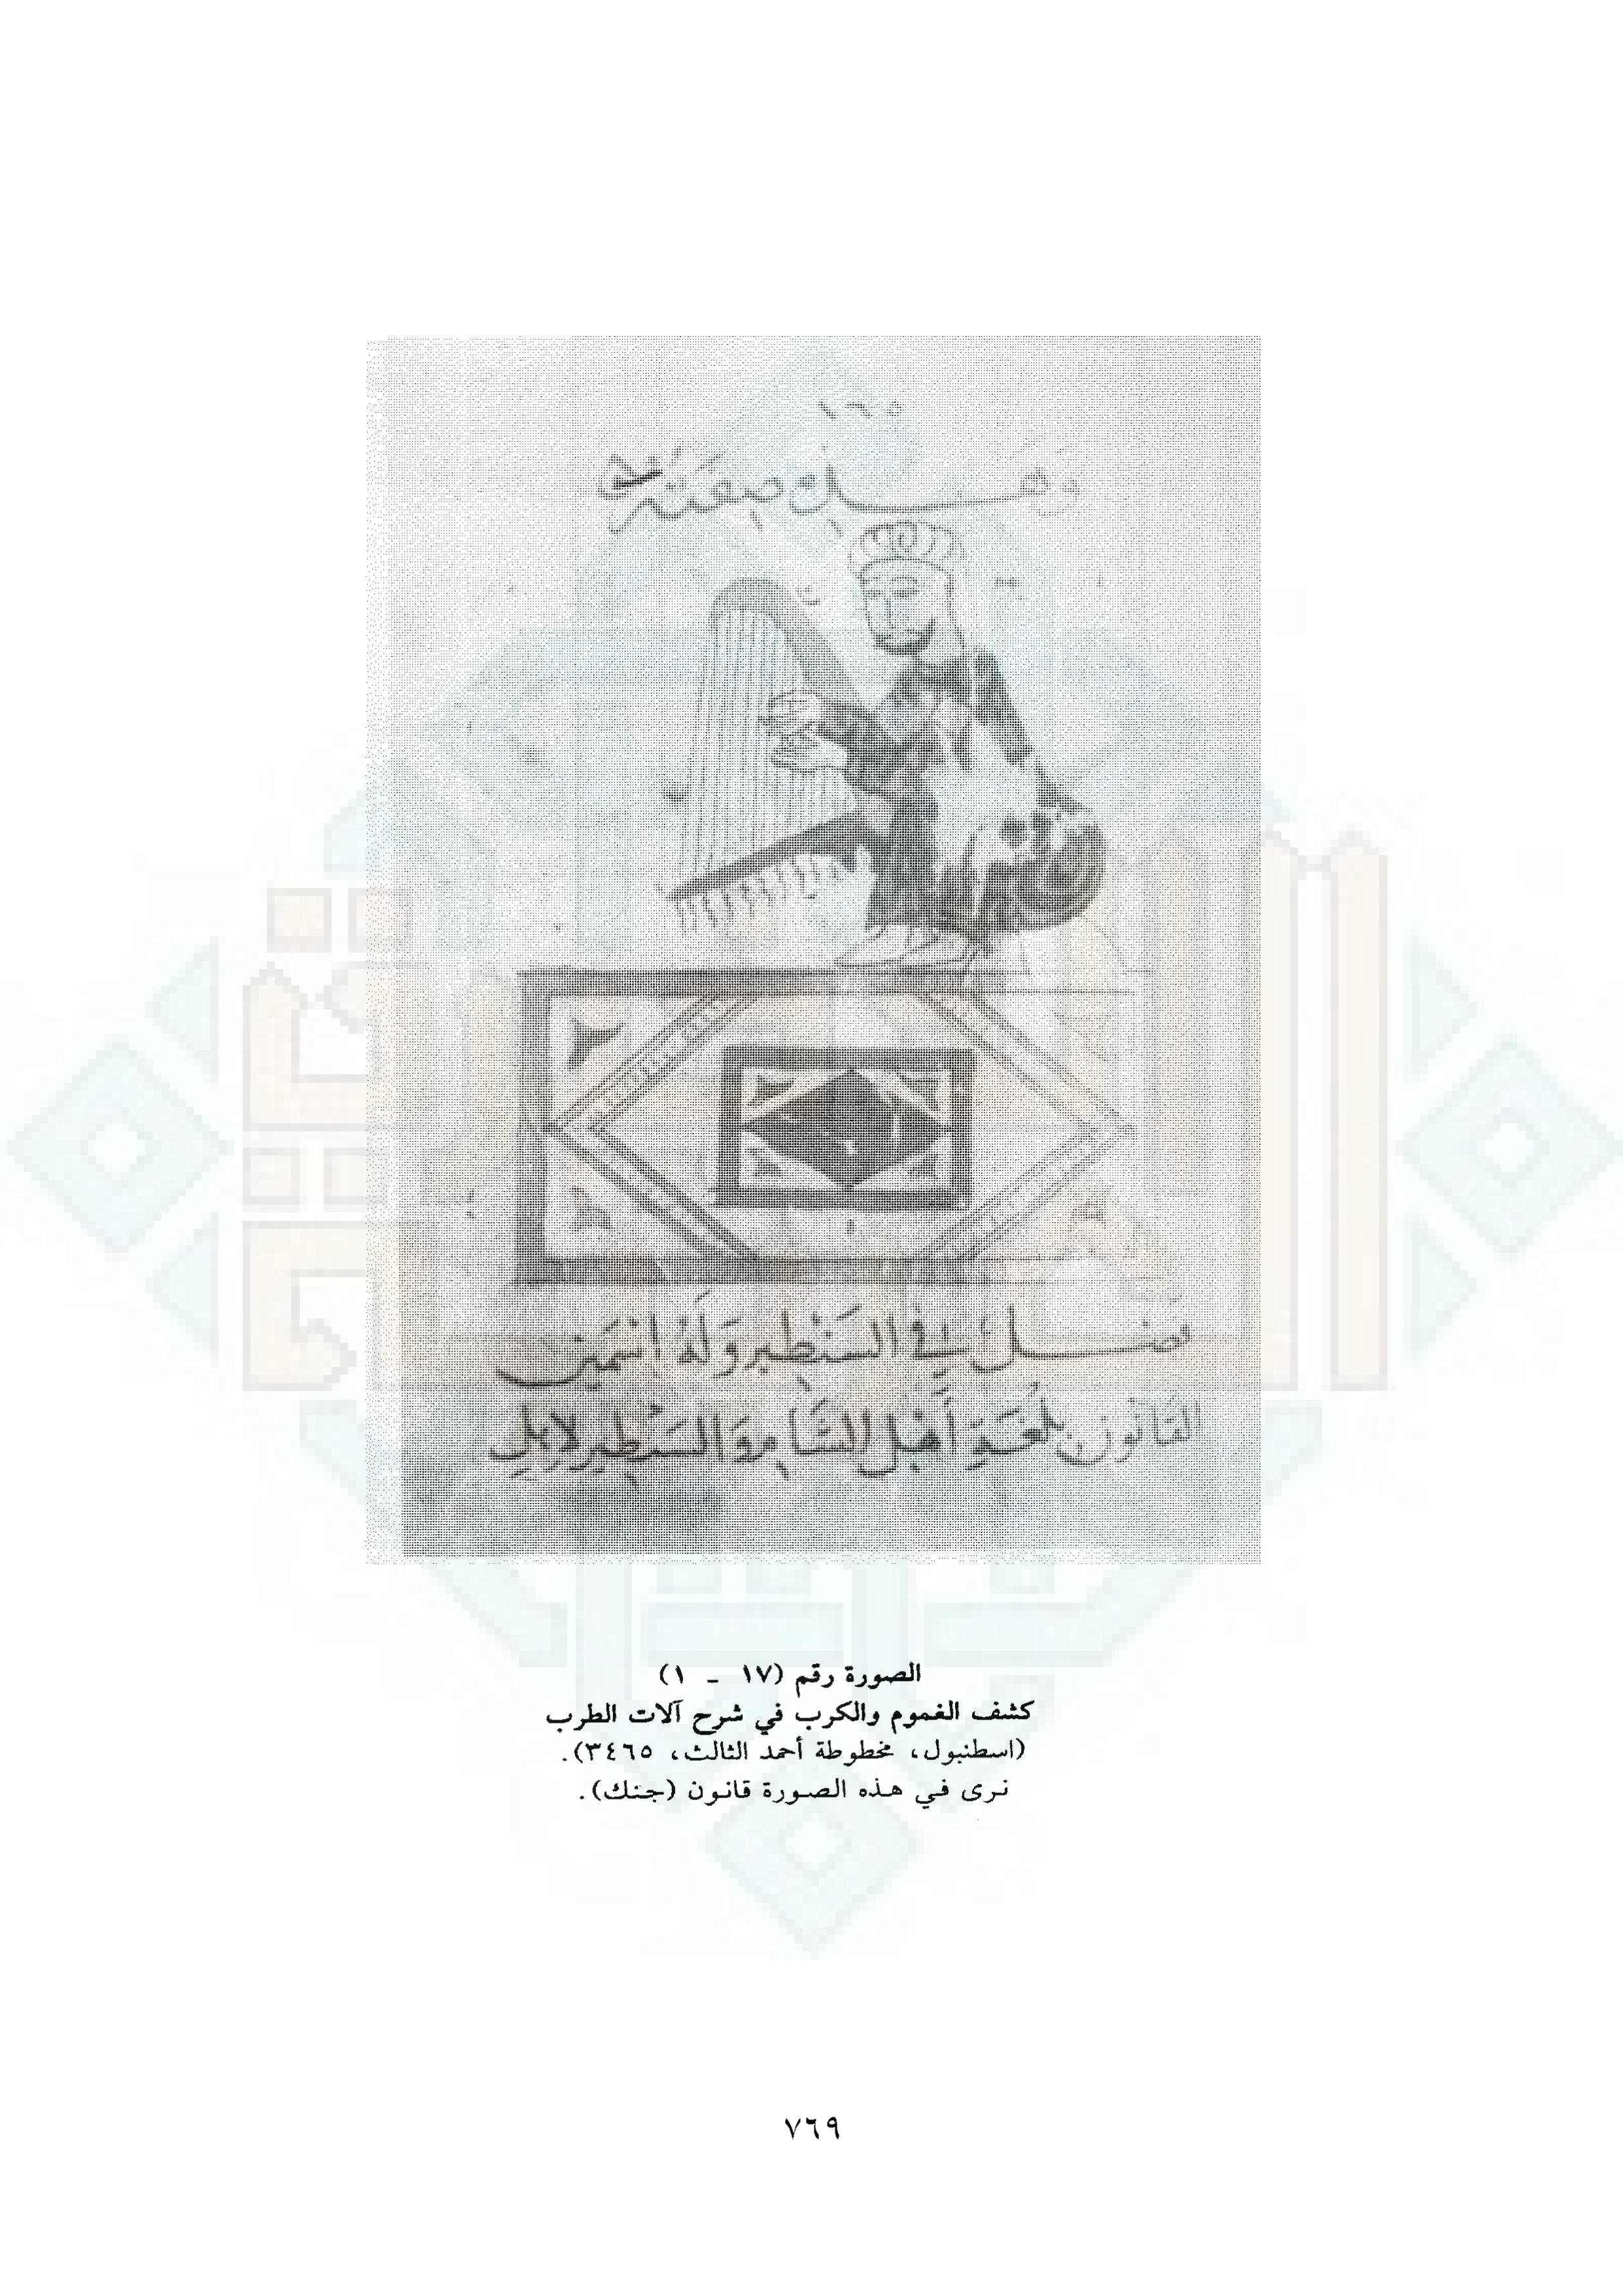 ١٦٥
وهذه صفته
فصل في السنطير وله اسمين
القانون بلغة أهل الشام والسنطير لاهل
الصورة رقم (١٧ ـ ١)
كشف الغموم والكرب في شرح آلات الطرب
(اسطنبول، مخطوطة أحمد الثالث، ٣٤٦٥).
نرى في هذه الصورة قانون (جنك).
٧٦٩